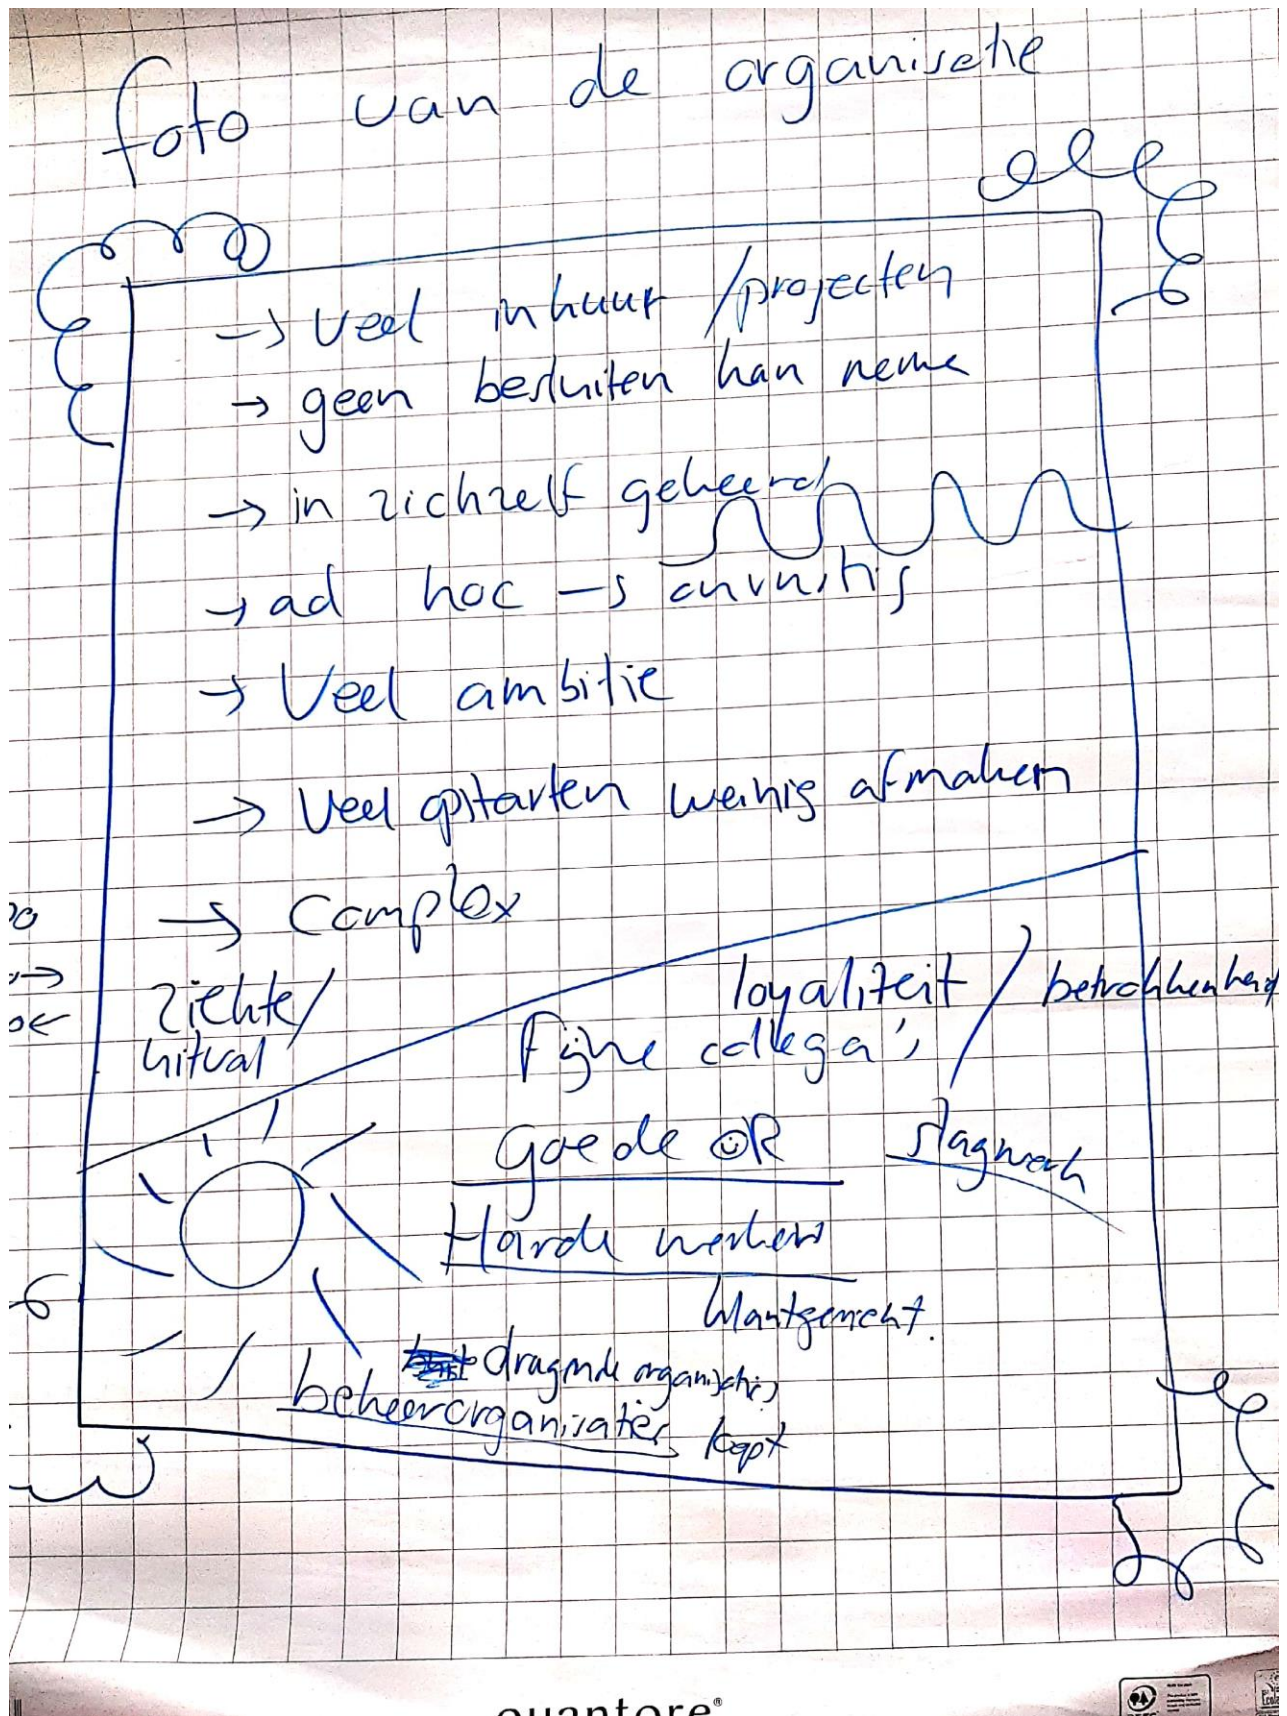 foto van de organisatie
→ Veel inhuur /projecten
→ geen besluiten kan neme
→ in zichzelf gekeerd
→ ad hoc → onrustig
→ Veel ambitie
→ Veel opstarten weinig afmaken
→ Complex
Ziekte/
uitval
loyaliteit / betrokkenheid
Fijne collega's
Goede OR
slagwerk
Harde werkers
klantgericht.
dragende organisaties
beheerorganisaties loopt
quantore®